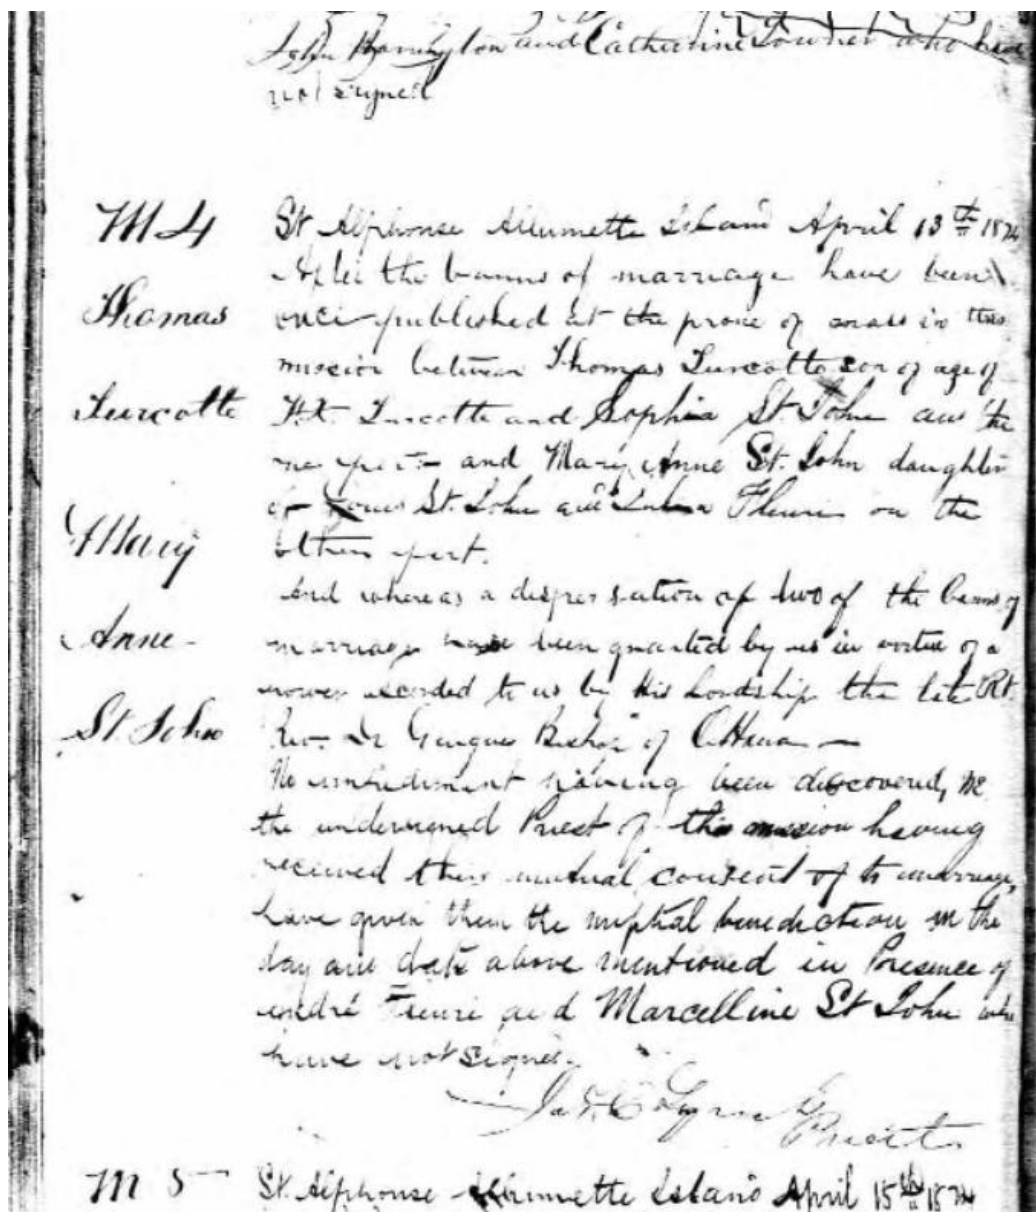 and Catherine who have
not signed
M 4
Thomas
Turcotte
Mary
Anne
St. John
St Alphonse Allumette Island April 13th 1874
After the banns of marriage have been
once published at the prone of mass in this
mission between Thomas Turcotte son of age of
F.X. Turcotte and Sophia St. John on the
one part and Mary Anne St. John daughter
of St. John and Fleuri on the
other part.
And whereas a dispensation of two of the banns of
marriage have been granted by us in vertue of a
power accorded to us by His Lordship the late Rt.
Rev. Dr Guigues Bishop of Ottawa —
No impediment having been discovered, we
the undersigned Priest of this mission having
received their mutual consent of to marriage,
have given them the nuptial benediction on the
day and date above mentioned in Presence of
André Fleuri and Marcelline St John who
have not signed.
Lynch
Priest
M 5
St. Alphonse Allumette Island April 15th 1874